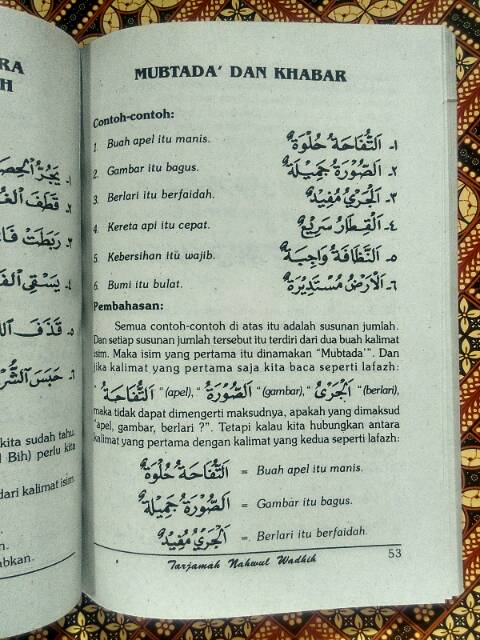 RA
H
١- يَجُرُّ الْحِصَ
٢- قَطَفَ الْغُـ
٣- رَبَطَتْ فَا
٤- يَسْقِى الْفَـ
٥- قَذَفَ اللَّا
٦- حَبَسَ الشُّرْ
kita sudah tahu.
l Bih) perlu kita
dari kalimat isim
n.
abkan.
MUBTADA' DAN KHABAR
Contoh-contoh:
1. Buah apel itu manis. ١- اَلتُّفَّاحَةُ حُلْوَةٌ
2. Gambar itu bagus. ٢- اَلصُّوْرَةُ جَمِيْلَةٌ
3. Berlari itu berfaidah. ٣- اَلْجَرْيُ مُفِيْدٌ
4. Kereta api itu cepat. ٤- اَلْقِطَارُ سَرِيْعٌ
5. Kebersihan itu wajib. ٥- اَلنَّظَافَةُ وَاجِبَةٌ
6. Bumi itu bulat. ٦- اَلْأَرْضُ مُسْتَدِيْرَةٌ
Pembahasan:
Semua contoh-contoh di atas itu adalah susunan jumlah.
Dan setiap susunan jumlah tersebut itu terdiri dari dua buah kalimat
isim. Maka isim yang pertama itu dinamakan "Mubtada'". Dan
jika kalimat yang pertama saja kita baca seperti lafazh:
" اَلتُّفَّاحَةُ " (apel), " اَلصُّوْرَةُ " (gambar), " اَلْجَرْىُ " (berlari),
maka tidak dapat dimengerti maksudnya, apakah yang dimaksud
"apel, gambar, berlari ?". Tetapi kalau kita hubungkan antara
kalimat yang pertama dengan kalimat yang kedua seperti lafazh:
اَلتُّفَّاحَةُ حُلْوَةٌ = Buah apel itu manis.
اَلصُّوْرَةُ جَمِيْلَةٌ = Gambar itu bagus.
اَلْجَرْيُ مُفِيْدٌ = Berlari itu berfaidah.
Tarjamah Nahwul Wadhih 53